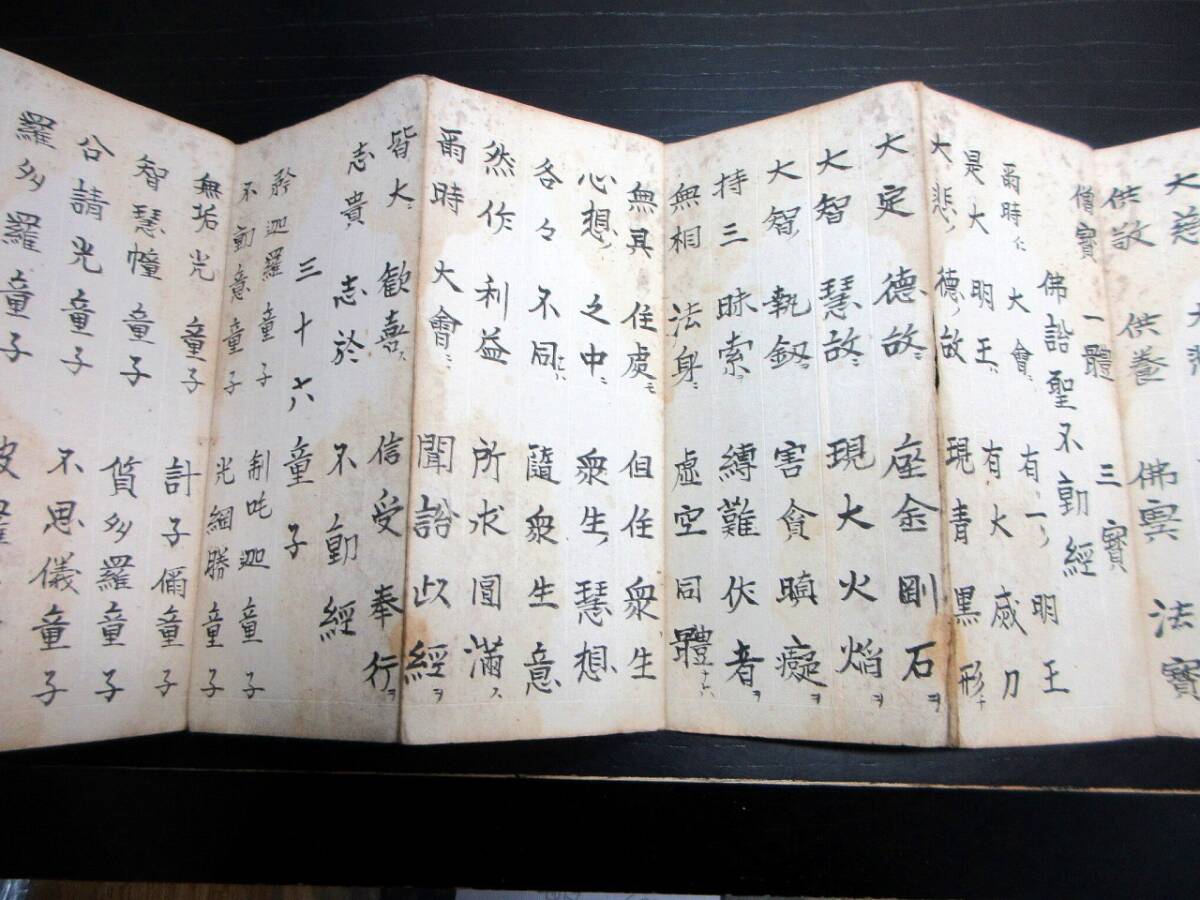 大慈
供敬 供養 佛寶 法寶
僧寶 一體 三寶
佛說聖不動經
爾時ニ 大會ニ 有一ノ 明王
是大 明王ハ 有大 威力
大悲ノ 德ノ故 現青 黑形ナ
大定 德故ニ 座金剛石ヲ
大智 慧故ニ 現大火焰ヲ
大智ノ 執釼ヲ 害貪瞋癡ヲ
持三 昧索ヲ 縛難伏者ヲ
無相 法身ニ 虛空同體ナレハ
無具 住處モ 但住衆生
心想ノ 之中ニ 衆生ノ 慧想
各々 不同ナレハ 隨衆生意
然作 利益 所求圓滿ス
爾時 大會ニ 聞說此經ヲ
皆大ニ 歡喜ス 信受奉行ヲ
志貴 志於 不動經
三十六童子
矜迦羅童子 制吒迦童子
不動恵童子 光網勝童子
無垢光童子 計子儞童子
智慧幢童子 質多羅童子
召請光童子 不思儀童子
羅多羅童子